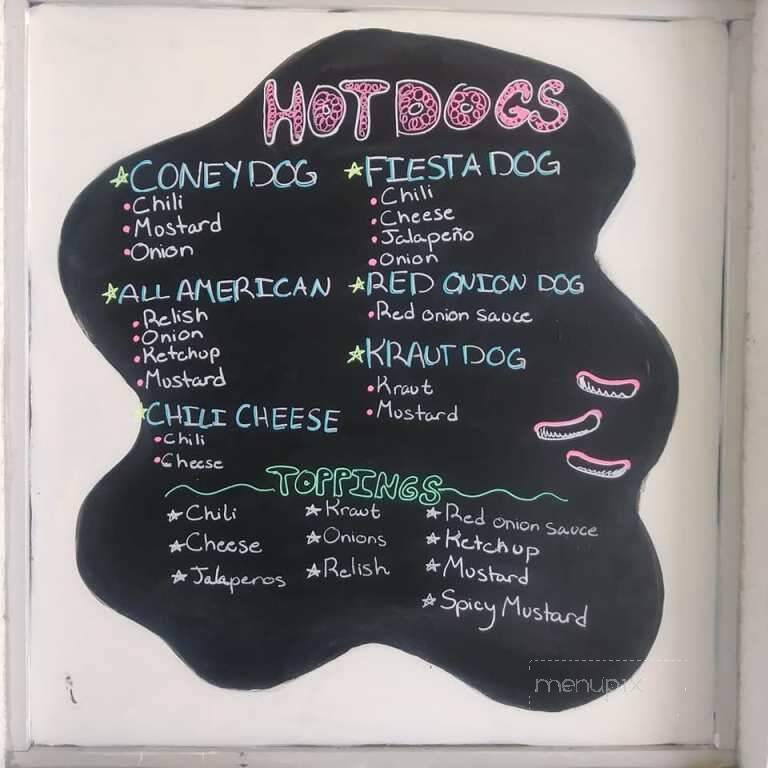 HOTDOGS
☆CONEY DOG
•Chili
•Mustard
•Onion
☆ALL AMERICAN
•Relish
•Onion
•Ketchup
•Mustard
☆CHILI CHEESE
•Chili
•Cheese
☆FIESTA DOG
•Chili
•Cheese
•Jalapeño
•Onion
☆RED ONION DOG
•Red onion sauce
☆KRAUT DOG
•Kraut
•Mustard
TOPPINGS
☆Chili
☆Cheese
☆Jalaperos
☆Kraut
☆Onions
☆Relish
☆Red onion sauce
☆Ketchup
☆Mustard
☆Spicy Mustard
menupix